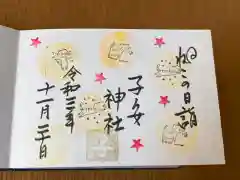 ねこの日詣
子安神社
令和三年
十一月二十日